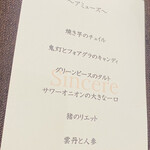 〜アミューズ〜
焼き芋のチュイル
鬼灯とフォアグラのキャンディ
グリーンピースのタルト
Sincere
サワーオニオンの大きな一口
猪のリエット
雲丹と人参